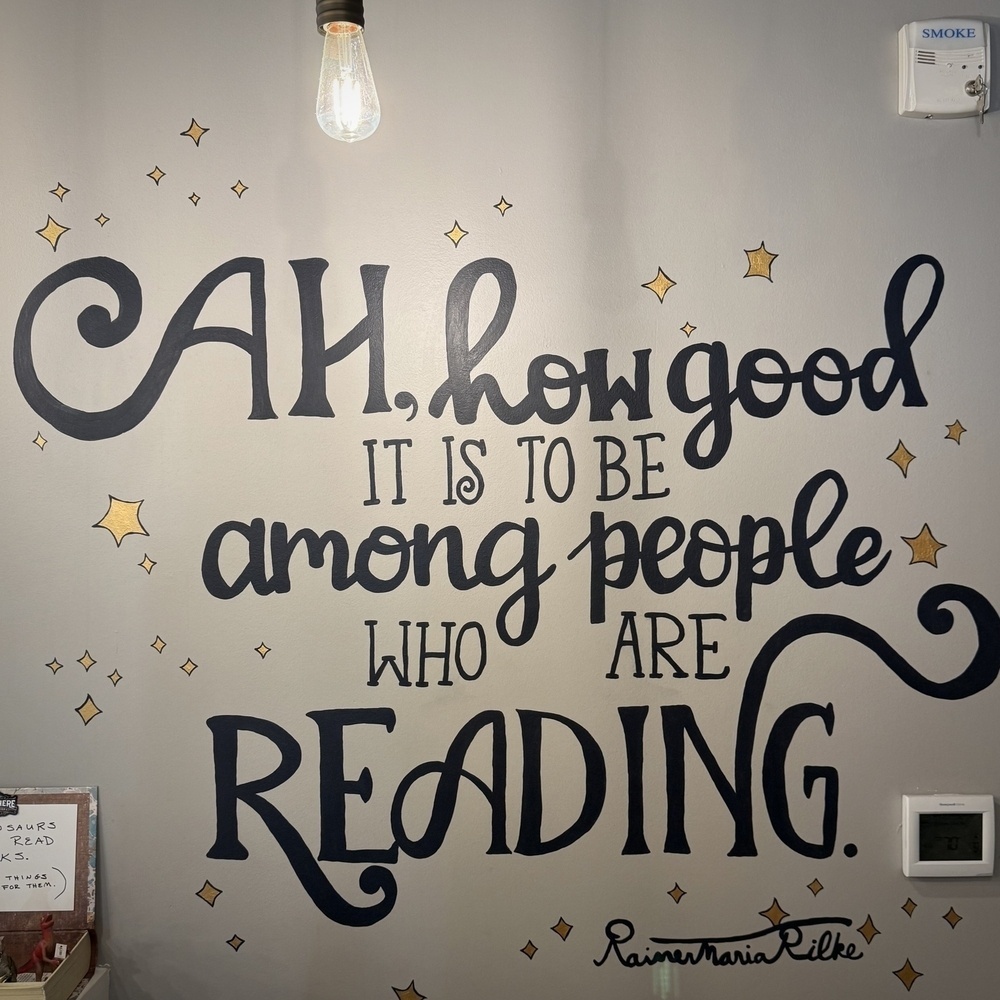 SMOKE
AH, how good
IT IS TO BE
among people
WHO ARE
READING.
Rainer Maria Rilke
READ
THINGS
FOR THEM.)